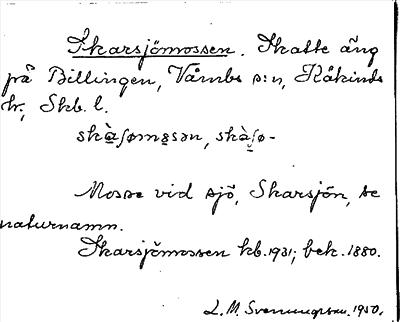 Skarsjömossen. Skatte äng
på Billingen, Våmbs s:n, Kåkinds
hr, Skb. l.
skàʃømo̤sən, skàʃø-
Mosse vid sjö, Skarsjön, se
naturnamn.
Skarsjömossen kb. 1931; bek. 1880.
L. M. Svenungsson. 1950.